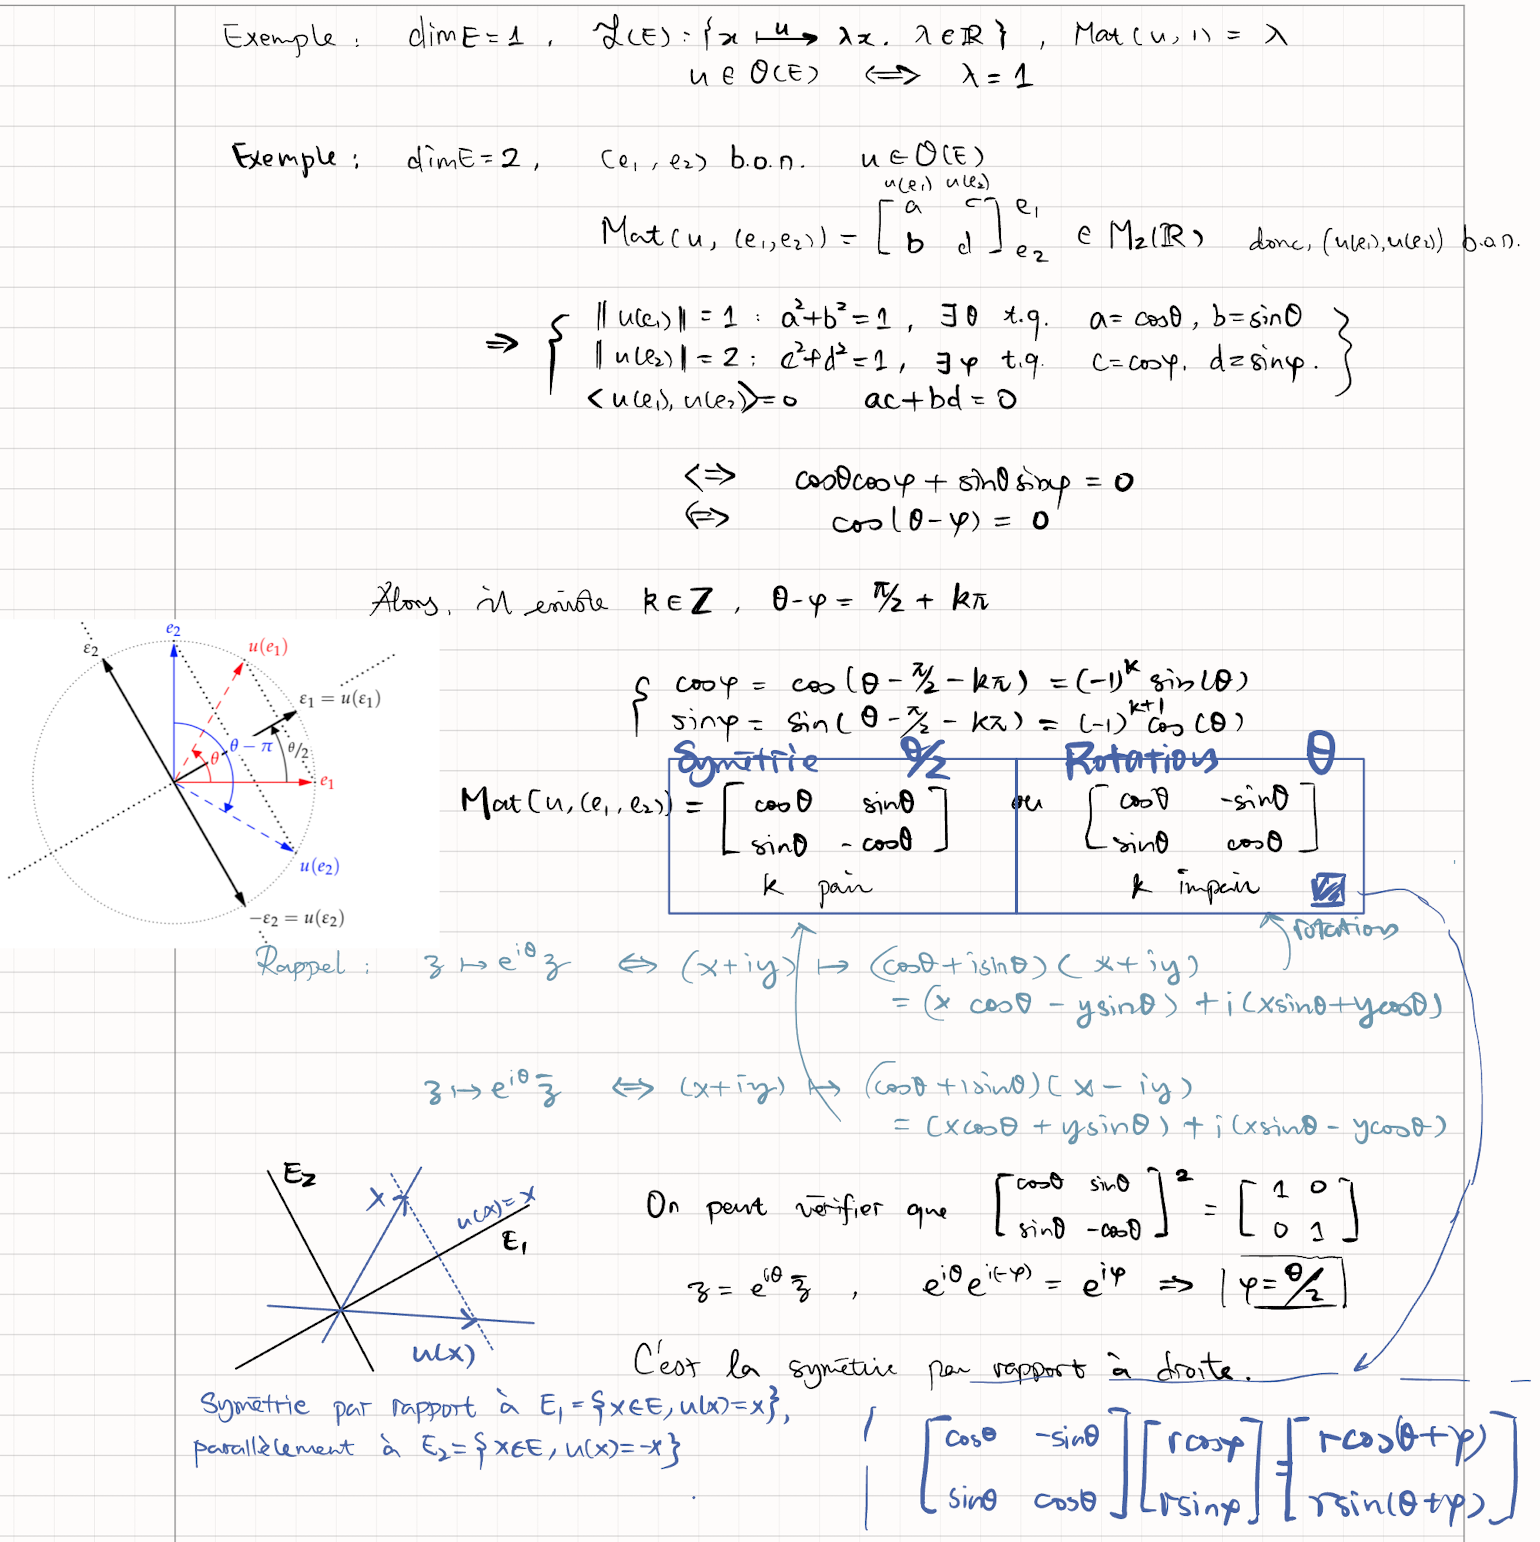 Exemple : dimE=1 , ℒ(E) : {x ↦ᵘ λx. λ∈ℝ} , Mat(u,1) = λ
u ∈ O(E) ⟺ λ = 1
Exemple : dimE=2 , (e₁, e₂) b.o.n. u ∈ O(E)
u(e₁) u(e₂)
Mat(u, (e₁,e₂)) = [a c; b d] e₁ e₂ ∈ M₂(ℝ) donc, (u(e₁),u(e₂)) b.o.n.
⇒ { ‖u(e₁)‖ = 1 : a²+b²=1 , ∃θ t.q. a=cosθ, b=sinθ
‖u(e₂)‖ = 2 : c²+d²=1, ∃φ t.q. c=cosφ, d=sinφ. }
<u(e₁), u(e₂)>=0 ac+bd=0
⟺ cosθcosφ + sinθsinφ = 0
⟺ cos(θ-φ) = 0
Alors, il existe k∈Z , θ-φ = π/2 + kπ
{ cosφ = cos(θ - π/2 - kπ) = (-1)^k sin(θ)
sinφ = sin(θ - π/2 - kπ) = (-1)^{k+1} cos(θ)
e₂
ε₂
u(e₁)
ε₁ = u(ε₁)
θ
θ − π
θ/2
e₁
u(e₂)
−ε₂ = u(ε₂)
Symétrie θ/2 Rotations θ
Mat(u,(e₁,e₂)) = [cosθ sinθ; sinθ -cosθ] ou [cosθ -sinθ; sinθ cosθ]
k pair k impair
rotations
Rappel : z ↦ e^{iθ}z ⟺ (x+iy) ↦ (cosθ+isinθ)(x+iy)
= (x cosθ - ysinθ) + i(xsinθ+ycosθ)
z ↦ e^{iθ}z̄ ⟺ (x+iy) ↦ (cosθ+isinθ)(x-iy)
= (xcosθ + ysinθ) + i(xsinθ - ycosθ)
E₂
x
u(x)=x
E₁
u(x)
On peut vérifier que [cosθ sinθ; sinθ -cosθ]² = [1 0; 0 1]
z = e^{iθ}z̄ , e^{iθ}e^{i(-φ)} = e^{iφ} ⇒ |φ=θ/2|
C'est la symétrie par rapport à droite.
Symétrie par rapport à E₁={x∈E, u(x)=x},
parallèlement à E₂={x∈E, u(x)=-x}
[cosθ -sinθ; sinθ cosθ] [rcosφ; rsinφ] = [rcos(θ+φ); rsin(θ+φ)]